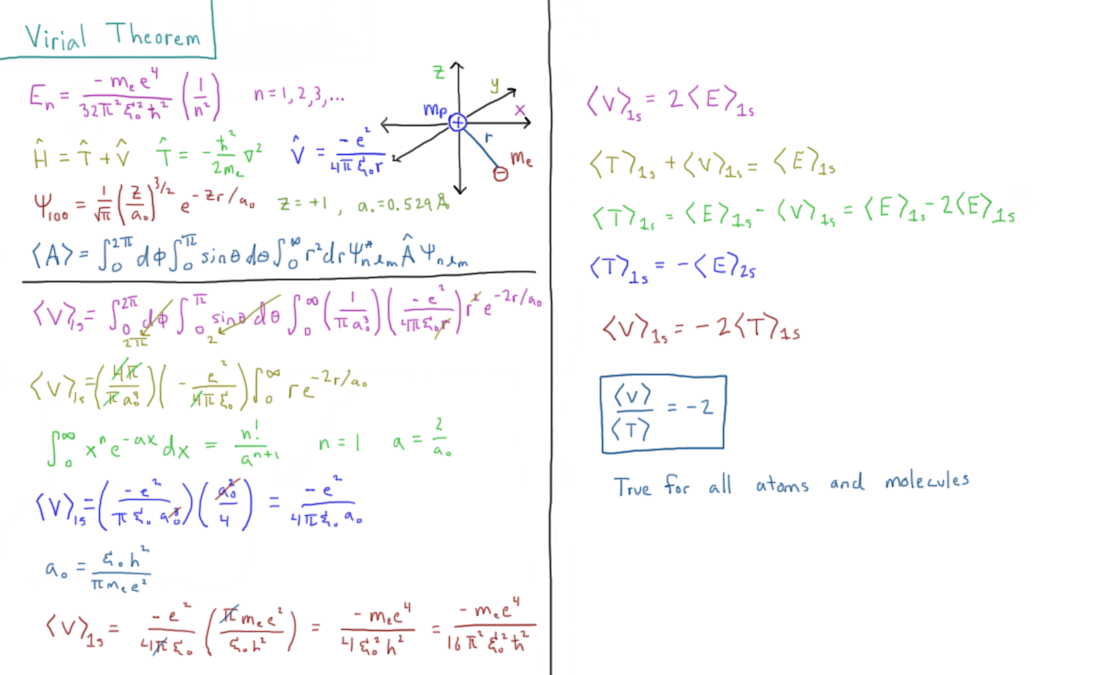 Virial Theorem
Eₙ = -mₑe⁴/(32π²ε₀²ħ²) (1/n²) n = 1, 2, 3, ...
z y x mₚ + r mₑ −
Ĥ = T̂ + V̂ T̂ = -ħ²/(2mₑ) ∇² V̂ = -e²/(4πε₀r)
Ψ₁₀₀ = 1/√π (Z/a₀)^(3/2) e^(-Zr/a₀) Z = +1, a₀ = 0.529 Å
⟨A⟩ = ∫₀^(2π) dϕ ∫₀^π sinθ dθ ∫₀^∞ r² dr Ψ*ₙₗₘ Â Ψₙₗₘ
⟨V⟩₁ₛ = ∫₀^(2π) dϕ ∫₀^π sinθ dθ ∫₀^∞ (1/(πa₀³)) (-e²/(4πε₀r)) r² e^(-2r/a₀)
2π 2
⟨V⟩₁ₛ = (4π/(πa₀³)) (-e²/(4πε₀)) ∫₀^∞ r e^(-2r/a₀)
∫₀^∞ xⁿ e^(-ax) dx = n!/a^(n+1) n = 1 a = 2/a₀
⟨V⟩₁ₛ = (-e²/(πε₀a₀³)) (a₀²/4) = -e²/(4πε₀a₀)
a₀ = ε₀h²/(πmₑe²)
⟨V⟩₁ₛ = -e²/(4πε₀) (πmₑe²/(ε₀h²)) = -mₑe⁴/(4ε₀²h²) = -mₑe⁴/(16π²ε₀²ħ²)
⟨V⟩₁ₛ = 2⟨E⟩₁ₛ
⟨T⟩₁ₛ + ⟨V⟩₁ₛ = ⟨E⟩₁ₛ
⟨T⟩₁ₛ = ⟨E⟩₁ₛ - ⟨V⟩₁ₛ = ⟨E⟩₁ₛ - 2⟨E⟩₁ₛ
⟨T⟩₁ₛ = -⟨E⟩₂ₛ
⟨V⟩₁ₛ = -2⟨T⟩₁ₛ
⟨V⟩/⟨T⟩ = -2
True for all atoms and molecules